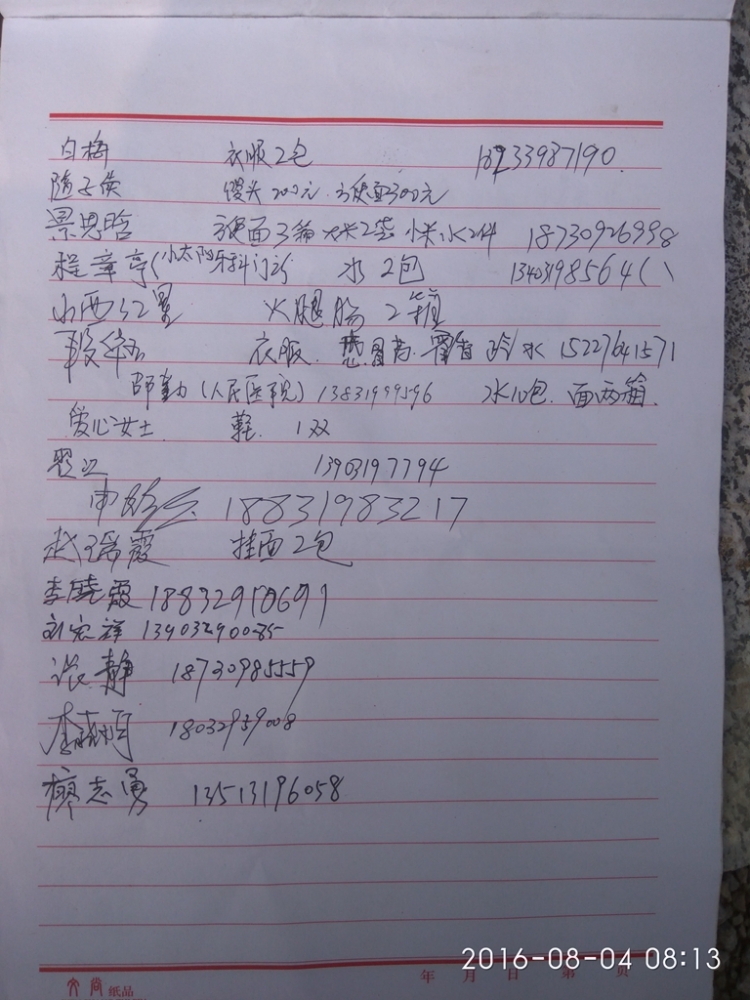 白梅 衣服2包
随子侯 馒头200元 方便面300元
景思晗 方便面3箱 大米2袋 小米 水2件 18730926998
程章亭(小太阳牙科门诊 水2包 13403198564
山西红星 火腿肠2箱
衣服 藿香 水 15227641571
邵勤(人民医院) 13831999596 水10包 面两箱
爱心女士 鞋 1双
翠江 13903197794
申 18831983217
赵瑞霞 挂面2包
李晓霞
刘宏祥 13903290085
张静 18730985559
李 18032939008
廖志勇 13513196058
年 月 日 第 页
文尚 纸品
2016-08-04 08:13